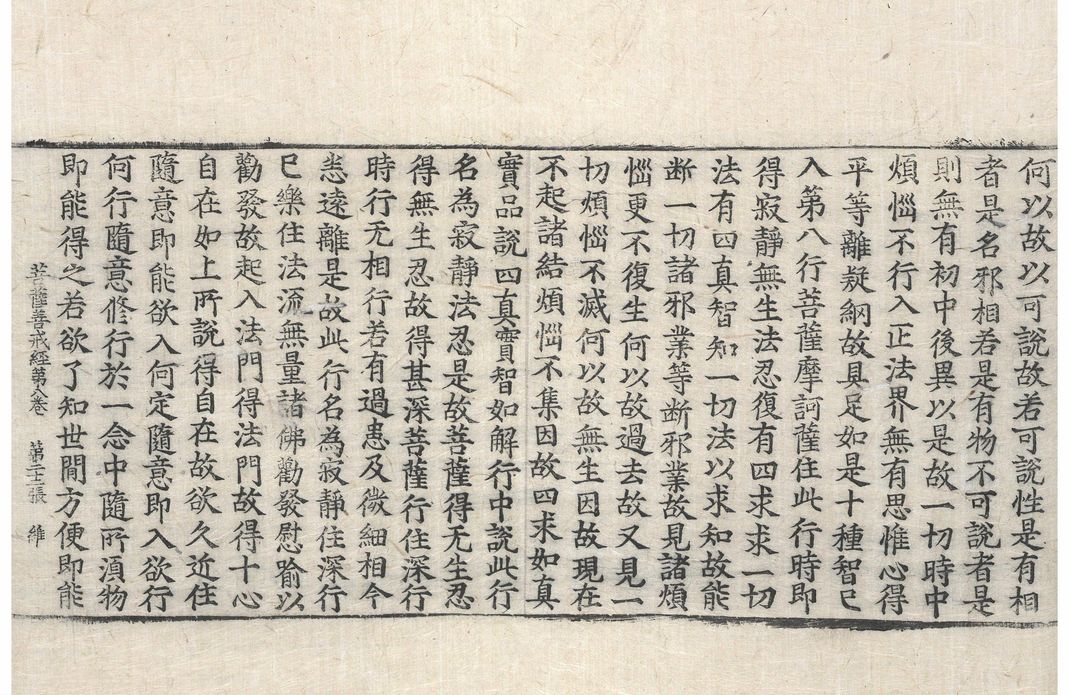 何以故以可說故若可說性是有相
者是名邪相若是有物不可說者是
則無有初中後異以是故一切時中
煩惱不行入正法界無有思惟心得
平等離疑網故具足如是十種智已
入第八行菩薩摩訶薩住此行時即
得寂靜無生法忍復有四求求一切
法有四真智知一切法以求知故能
断一切諸邪業等断邪業故見諸煩
惱更不復生何以故過去故又見一
切煩惱不滅何以故無生因故現在
不起諸結煩惱不集因故四求如真
實品說四真實智如解行中說此行
名為寂靜法忍是故菩薩得无生忍
得無生忍故得甚深菩薩行住深行
時行无相行若有過患及微細相今
悉遠離是故此行名為寂靜住深行
已樂住法流無量諸佛勸發慰喻以
勸發故起入法門得法門故得十心
自在如上所說得自在故欲久近住
隨意即能欲入何定隨意即入欲行
何行隨意修行於一念中隨所湏物
即能得之若欲了知世閒方便即能
菩薩善戒經第八卷 第二十二張 維